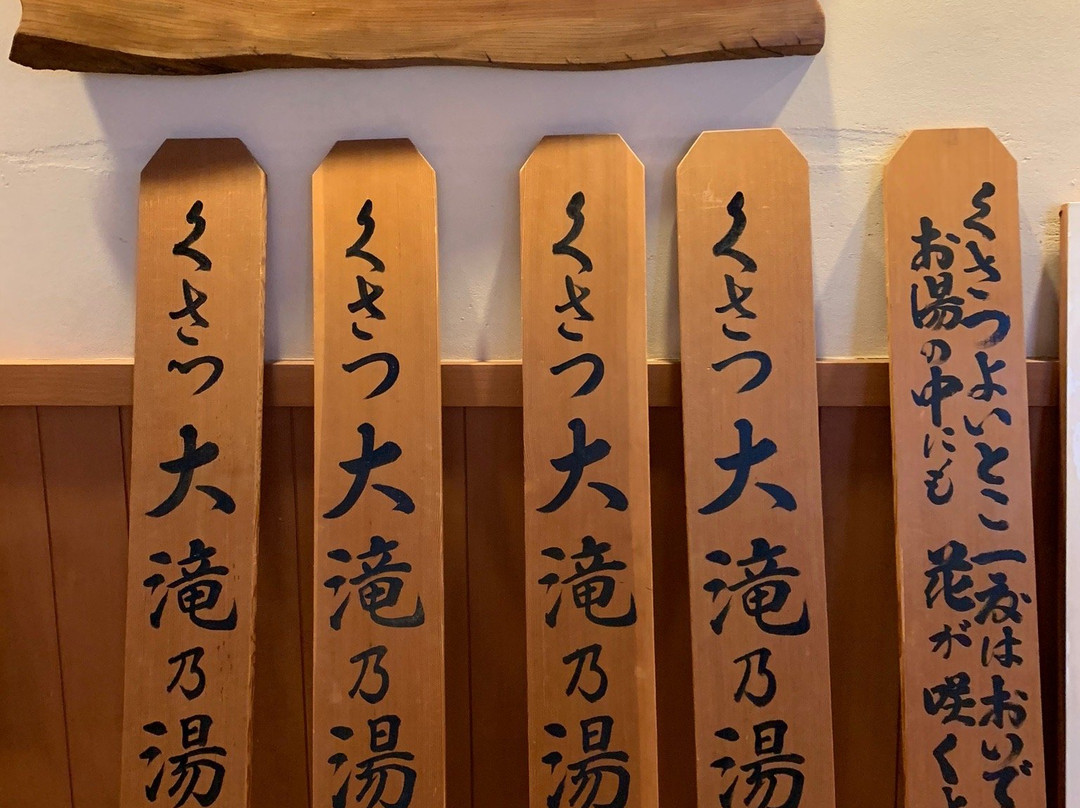 くさつ大滝乃湯
くさつ大滝乃湯
くさつ大滝乃湯
くさつ大滝乃湯
くさつよいとこ一度はおいで
お湯の中にも花が咲く